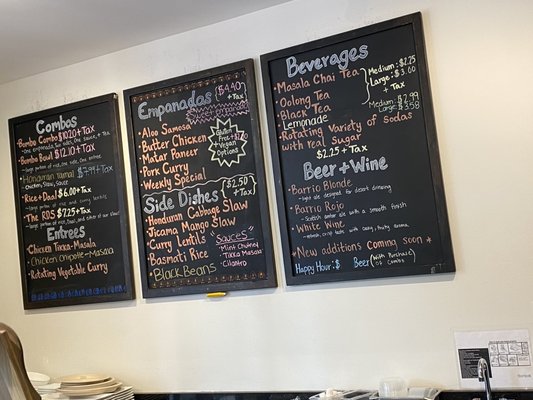 Combos
Bombo Combo $10.20+TAX
Bombo Bowl $12.20+TAX
Honduran Tamal $7.99+TAX
Chicken, Slaw, Sauce
Rice + Daal $6.00+TAX
The RDS $7.25+TAX
Entrees
Chicken Tikka-Masala
Chicken Chipotle-Masala
Rotating Vegetable Curry
Empanadas $4.40 +Tax
Sweet
Aloo Samosa
Butter Chicken
Matar Paneer
Pork Curry
Weekly Special
Gluten
Free +
Vegan
Options
Side Dishes $2.50 +Tax
Honduran Cabbage Slaw
Jicama Mango Slaw
Curry Lentils
Basmati Rice
Black Beans
Sauces
Mint Chutney
Tikka Masala
Cilantro
Beverages
Masala Chai Tea
Oolong Tea
Black Tea
Medium: $2.25
Large: $3.00
+ Tax
Lemonade
Medium $2.99
Large $3.50
Rotating Variety of Sodas
with real Sugar
$2.25 + Tax
Beer + Wine
Barrio Blonde
- light ale designed for desert drinking
Barrio Rojo
- Scottish amber ale with a smooth finish
White Wine
* New additions Coming Soon *
Happy Hour: $ Beer (with Purchase of Combo)